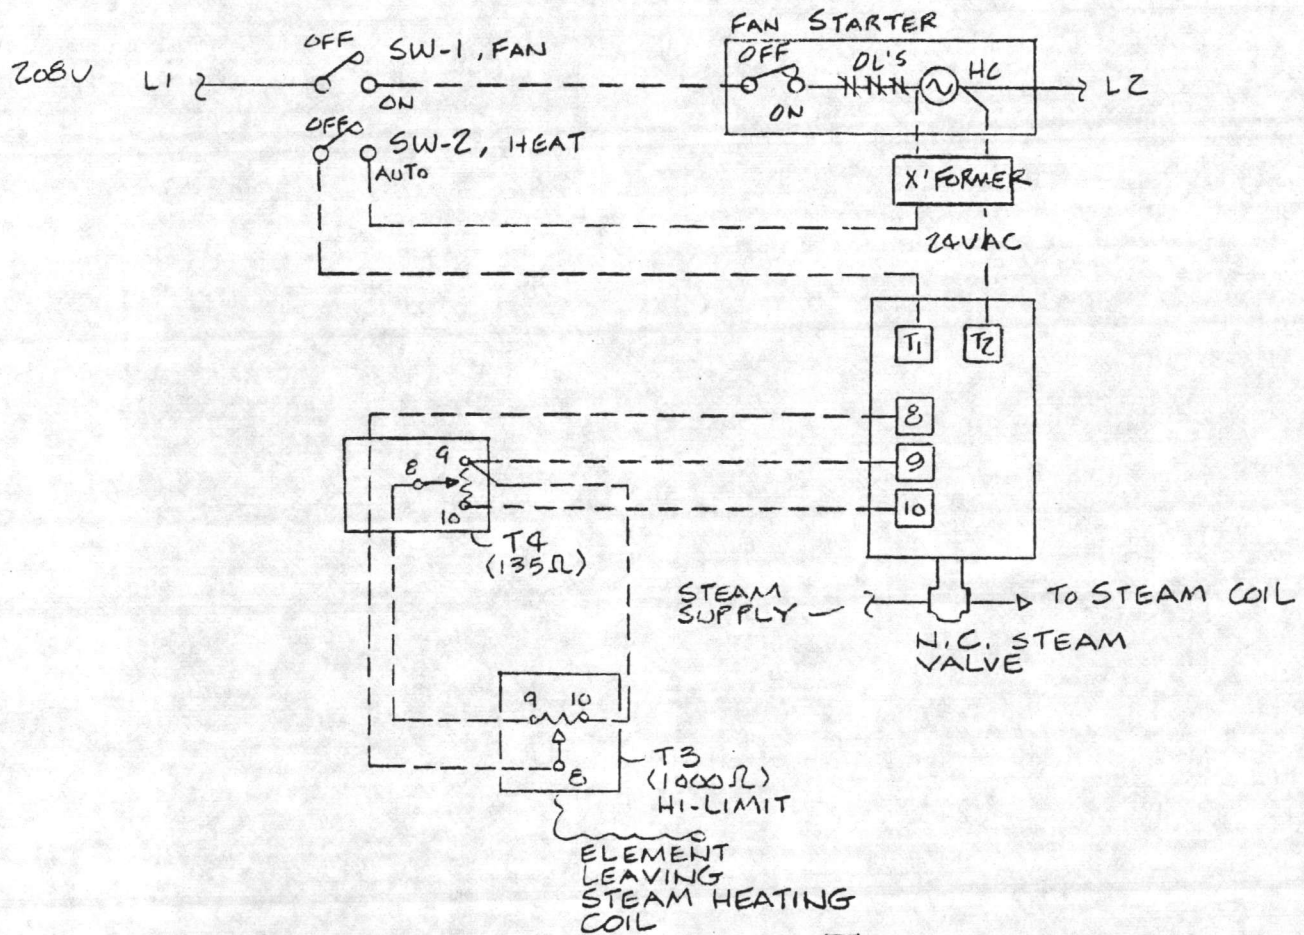 FAN STARTER
OFF
SW-1, FAN
208V
L1
ON
OFF
OL'S
HC
ON
L2
OFF
SW-2, HEAT
AUTO
X'FORMER
24VAC
T1
T2
8
9
10
9
8
10
T4
(135Ω)
STEAM
SUPPLY
TO STEAM COIL
N.C. STEAM
VALVE
9 10
8
T3
(1000Ω)
HI-LIMIT
ELEMENT
LEAVING
STEAM HEATING
COIL